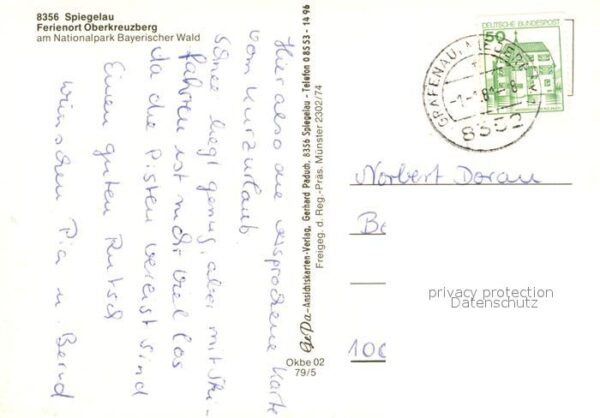 8356 Spiegelau
Ferienort Oberkreuzberg
am Nationalpark Bayerischer Wald
Hier also die versprochene Karte
vom Kurzurlaub.
Schnee liegt genug, aber mit Ski-
fahren ist nicht viel los
da die Pisten vereist sind
Einen guten Rutsch
wünschen Pia u. Bernd
GePa-Ansichtskarten-Verlag, Gerhard Paduch, 8356 Spiegelau - Telefon 0 85 53 - 14 96
Freigeg. d. Reg.-Präs. Münster 2302/74
Okbe 02
79/5
DEUTSCHE BUNDESPOST
50
GRAFENAU, NIEDERBAY
8352
Norbert Dorau
Be
100
privacy protection
Datenschutz